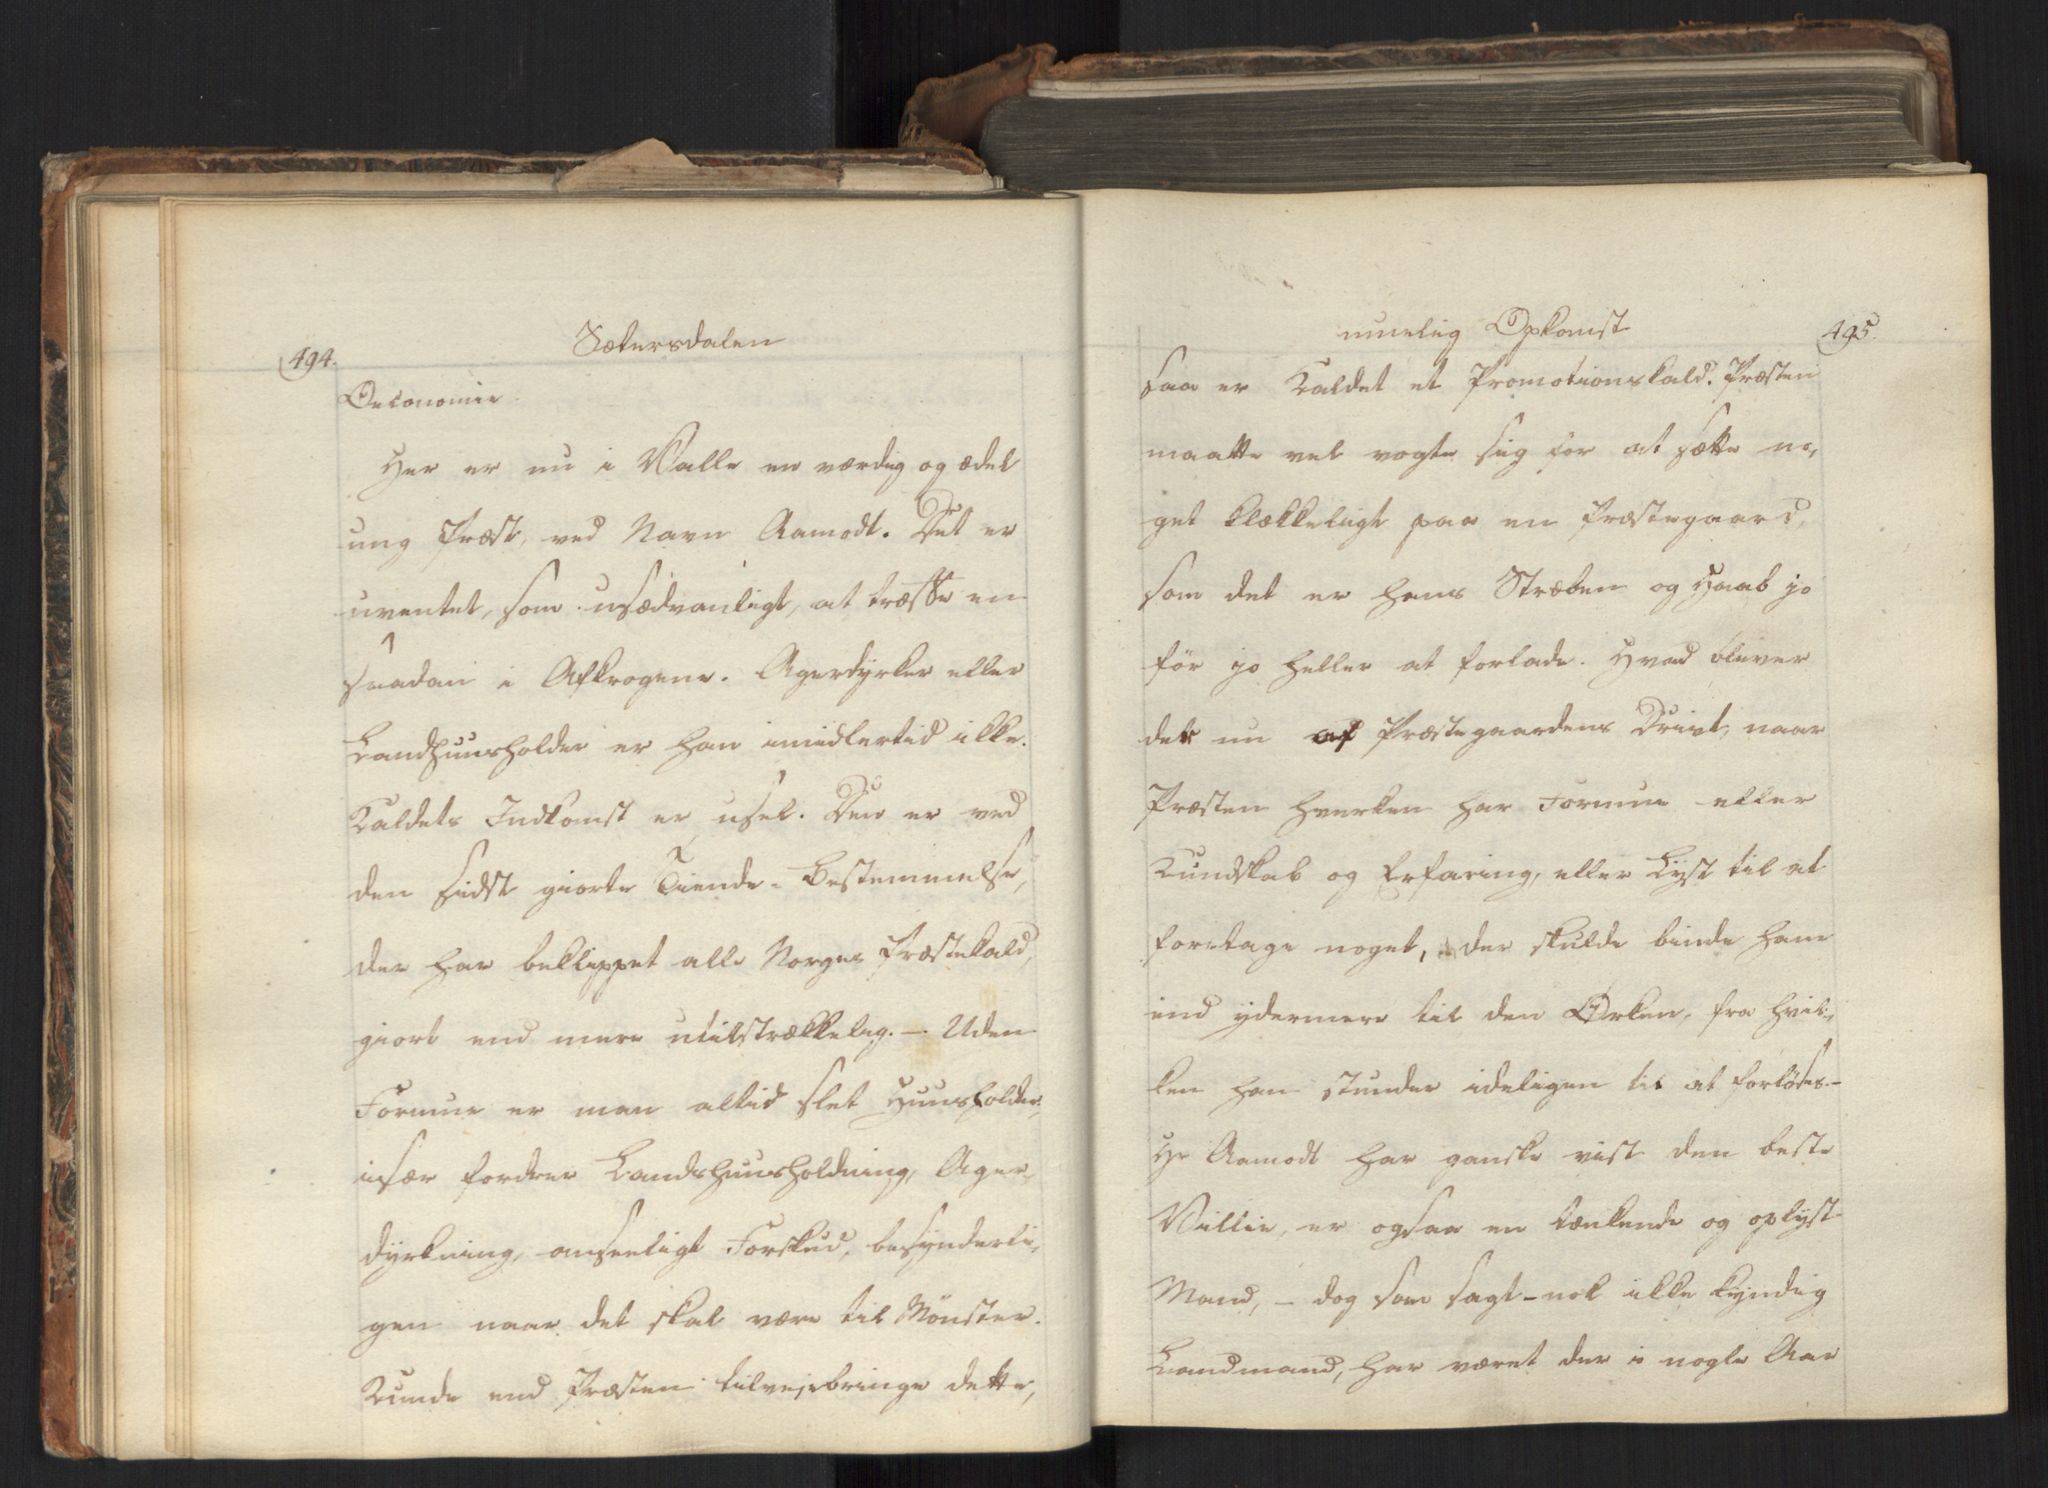 494.
Sætersdalen
Oeconomie.
Her er nu i Valle en værdig og ædel
ung Præst, ved Navn Aamodt. Det er
uventet, som usædvanligt, at træffe en
saadan i Afkrogene. Agerdyrker eller
Landhuusholder er han imidlertid ikke.
Kaldets Indkomst er usel. Den er ved
den sidst giorte Tiende-Bestemmelse,
der har beklippet alle Norges Præstekald,
giort end mere utilstrækkelig. — Uden
Formue er man altid slet Huusholder,
især fordrer Landhuusholdning, Ager-
dyrkning, anseeligt Forskud, besynderli-
gen naar det skal være til Mønster.
Kunde end Præsten tilvejebringe dette,
muelig Opkomst
495.
saa er Kaldet et Promotionskald. Præsten
maatte vel vogte sig for at sætte no-
get klækkeligt paa en Præstegaard,
som det er hans Stræben og Haab jo
før jo heller at forlade. Hvad bliver
det nu af Præstegaardens Drivt, naar
Præsten hverken har Formue eller
Kundskab og Erfaring, eller Lyst til at
foretage noget, der skulde binde ham
end ydermere til den Ørken, fra hvil-
ken han stunder ideligen til at forløses. —
Hr Aamodt har ganske vist den beste
Villie, er ogsaa en tænkende og oplyst
Mand, — dog som sagt — nok ikke kyndig
Landmand, har været der i nogle Aar